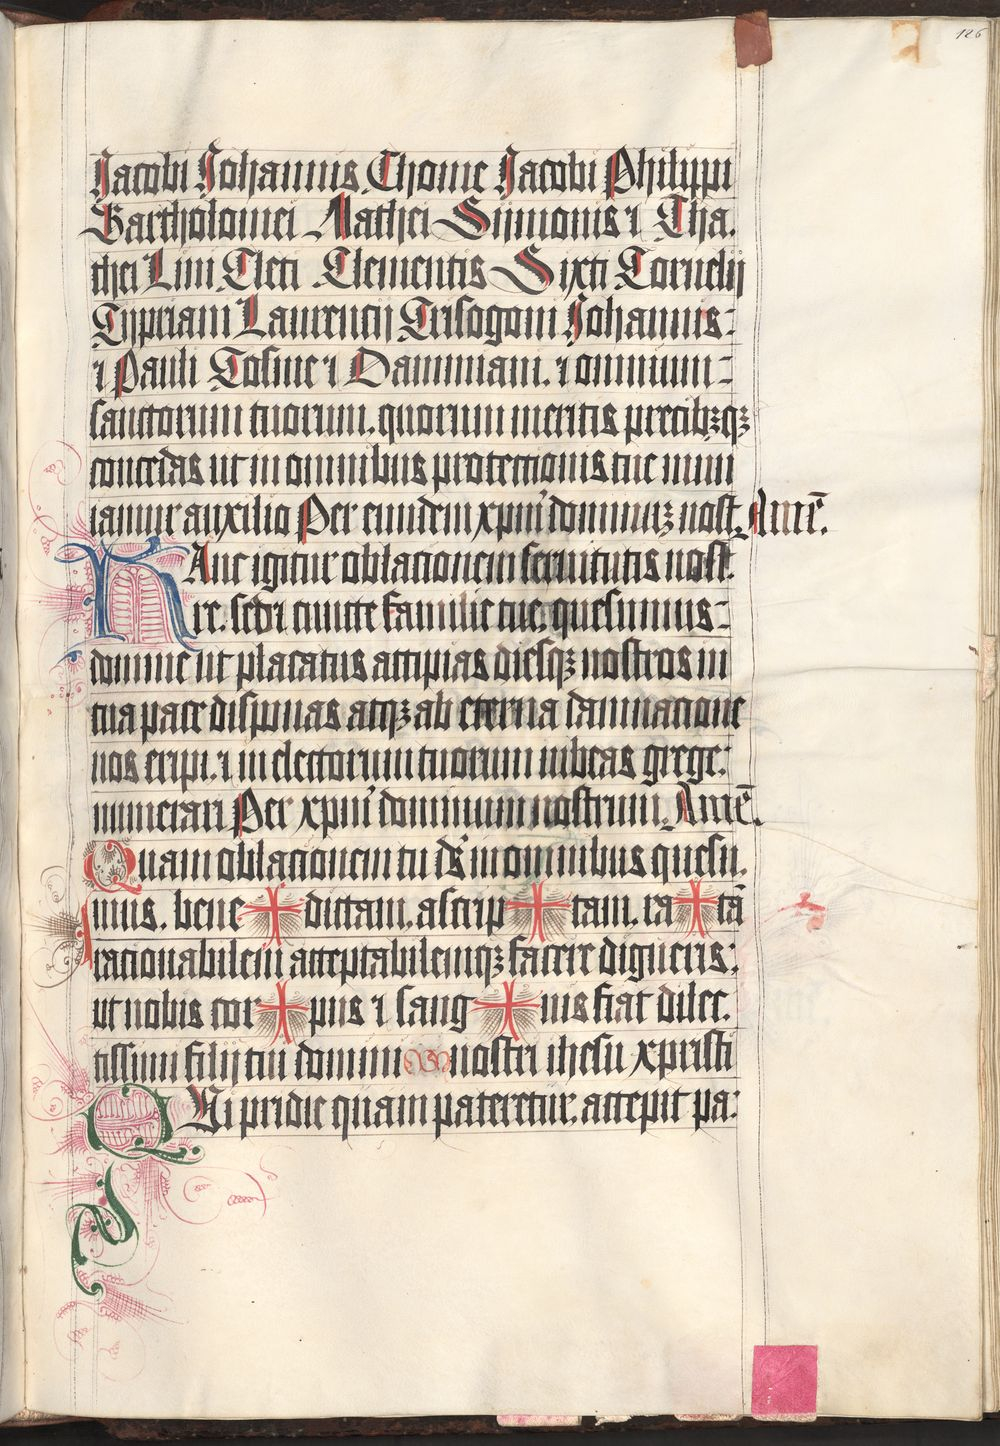 126
Jacobi Johannis Thome Jacobi Philippi
Bartholomei Mathei Sijmonis ⁊ Tha.
thei Lini Cleti Clementis Sixti Cornelij
Cijpriani Laurencij Crisogoni Johannis:
⁊ Pauli Cosme ⁊ Dammiani. ⁊ omnium:
sanctorum tuorum. quorum meritis precibꝫqꝫ
concedas ut in omnibus protectionis tue muni
iamur auxilio Per eundem xpm̄ dominuꝫ nost. Amē.
HAnc igitur oblacionem seruitutis nost.
re. sed ⁊ cuncte familie tue. quesumus:
domine ut placatus accipias diesqꝫ nostros in
tua pace disponas atqꝫ ab eterna damnacione
nos eripi. ⁊ in electorum tuorum iubeas grege:
numerari Per xpm̄ dominum nostrum. Amē.
Quam oblacionem tu ds̄ in omnibus quesu.
mus. bene ✝ dictam. ascrip ✝ tam. ra ✝ tā
racionabilem acceptabilemqꝫ facere digneris:
ut nobis cor ✝ pus ⁊ sang ✝ uis fiat dilec.
tissimi filij tui domini nostri ihesu xpristi
QUi pridie quam pateretur. accepit pa: